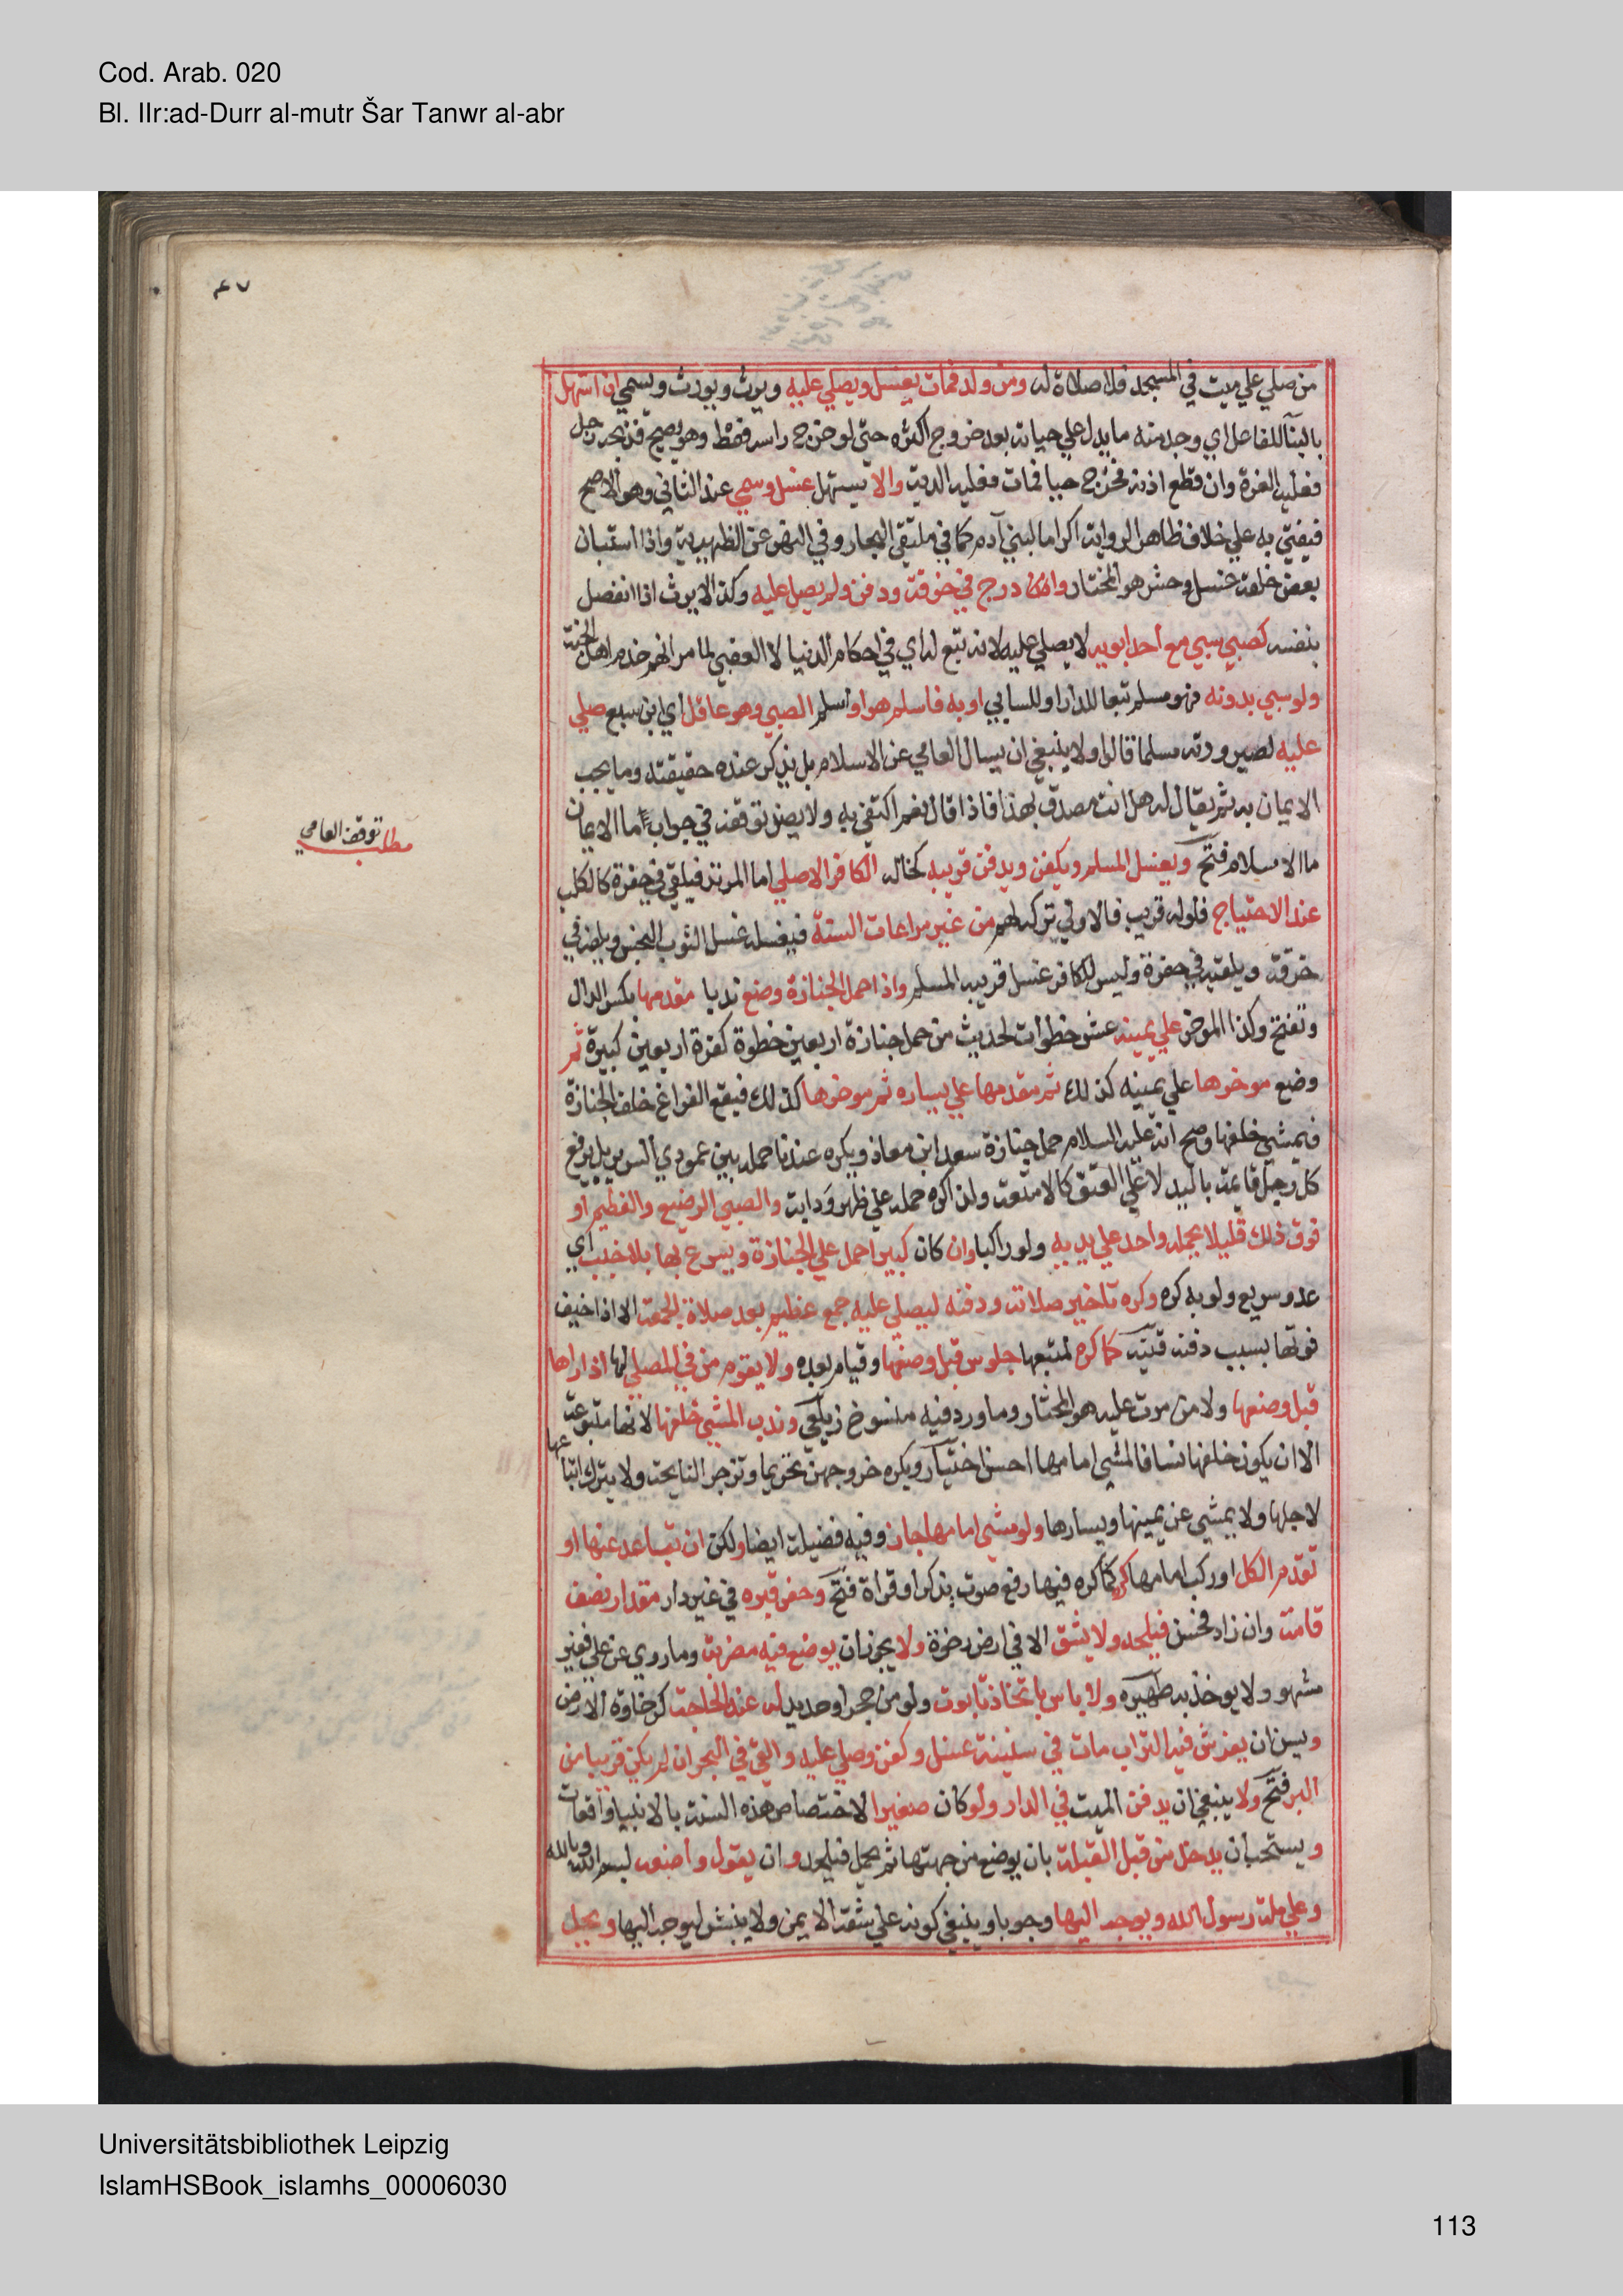 Cod. Arab. 020
Bl. IIr:ad-Durr al-mutr Šar Tanwr al-abr
٤٧
من صلي علي ميت في المسجد فلا صلاة له ومن ولد فمات يغسل ويصلي عليه ويرث ويورث ويسمي ان استهل
بالبنآ للفاعل اي وجد منه ما يدل علي حياته بعد خروج اكثره حتي لو خرج راسه فقط وهو يصيح فذبحه رجل
فعليه الغرة وان قطع اذنه فخرج حيا فمات فعليه الدية والا يستهل غسل وسمي عند الثاني وهو الاصح
فيفتي به علي خلاف ظاهر الرواية اكراما لبني آدم كما في ملتقي البحار وفي النهر عن الظهيرية واذا استبان
بعض خلقه غسل وحشر هو المختار وادرج في خرقة ودفن ولم يصل عليه وكذا لا يرث اذا انفصل
بنفسه كصبي سبي مع احد ابويه لا يصلي عليه لانه تبع له اي في احكام الدنيا لا العقبي لما مر انهم خدم اهل الجنة
ولو سبي بدونه فهو مسلم تبعا للدار او للسابي او به فاسلم هو او اسلم الصبي وهو عاقل اي ابن سبع صلي
عليه لصيرورته مسلما قالوا ولا ينبغي ان يسال العامي عن الاسلام بل يذكر عنده حقيقته وما يجب
الايمان به ثم يقال له هل انت مصدق بهذا فاذا قال نعم اكتفي به ولا يضر توقفه في جواب ما الايمان
مطلب توقف العامي
ما الاسلام فتح ويغسل المسلم ويكفن ويدفن قريبه كخاله الكافر الاصلي اما المرتد فيلقي في حفرة كالكلب
عند الاحتياج فلو له قريب فالاولي تركه لهم من غير مراعات السنة فيغسله غسل الثوب النجس ويلفه في
خرقة ويلقيه في حفرة وليس للكافر غسل قريبه المسلم واذا حمل الجنازة وضع ندبا مقدمها بكسر الدال
وتفتح وكذا الموخر علي يمينه عشر خطوات لحديث من حمل جنازة اربعين خطوة كفرة اربعين كبيرة ثم
وضع موخرها علي يمينه كذلك ثم مقدمها علي يساره ثم موخرها كذلك فيقع الفراغ خلف الجنازة
فيمشي خلفها وصح انه عليه السلام حمل جنازة سعد ابن معاذ ويكره عندنا حمله بين عمودي السرير بل يرفع
كل رجل قايمة باليد لا علي العنق كالامتعة ولذا كره حمله علي ظهر ودابة والصبي الرضيع والفطيم او
فوق ذلك قليلا يحمله واحد علي يديه ولو راكبا وان كان كبيرا حمل علي الجنازة ويسرع بها بلا خبب اي
عدو سريع ولو به كره وكره تاخير صلاته ودفنه ليصلي عليه جمع عظيم بعد صلاة الجمعة الا اذا خيف
فوتها بسبب دفنه قنيه كما كره لمتبعها جلوس قبل وضعها وقيام بعده ولا يقوم من في المصلي لها اذا راها
قبل وضعها ولا من مرت عليه هو المختار وما ورد فيه منسوخ زيلعي وندب المشي خلفها لانها متبوعة
الا ان يكون خلفها نسا فالمشي امامها احسن اختيار ويكره خروجهن تحريما وتزجر النايحة ولا يترك اتباعها
لاجلها ولا يمشي عن يمينها ويسارها ولو مشي امامها جاز وفيه فضيلة ايضا ولكن ان تباعد عنها او
تقدم الكل او ركب امامها كره كما كره فيها رفع صوت بذكر او قراة فتح وحفر قبره في غير دار مقدار نصف
قامة وان زاد فحسن فيلحد ولا يشق الا في ارض رخوة ولا يجوز ان يوضع فيه مضربة وما روي عن علي فغير
مشهور ولا يوخذ به ظهيره ولا باس باتخاذ تابوت ولو من حجر او حديد له عند الحاجة كرخاوة الارض
ويسن ان يفرش فيه التراب مات في سفينة غسل وكفن وصلي عليه والقي في البحر ان لم يكن قريبا من
البر فتح ولا ينبغي ان يدفن الميت في الدار ولو كان صغيرا لاختصاص هذه السنة بالانبيا واقعات
ويستحب ان يدخل من قبل القبلة بان يوضع من جهتها ثم يحمل فيلحد وان يقول واضعه بسم الله وبالله
وعلي ملة رسول الله ويوجه اليها وجوبا وينبغي كونه علي شقه الايمن ولا ينبش ليوجه اليها ويحل
Universitätsbibliothek Leipzig
IslamHSBook_islamhs_00006030
113